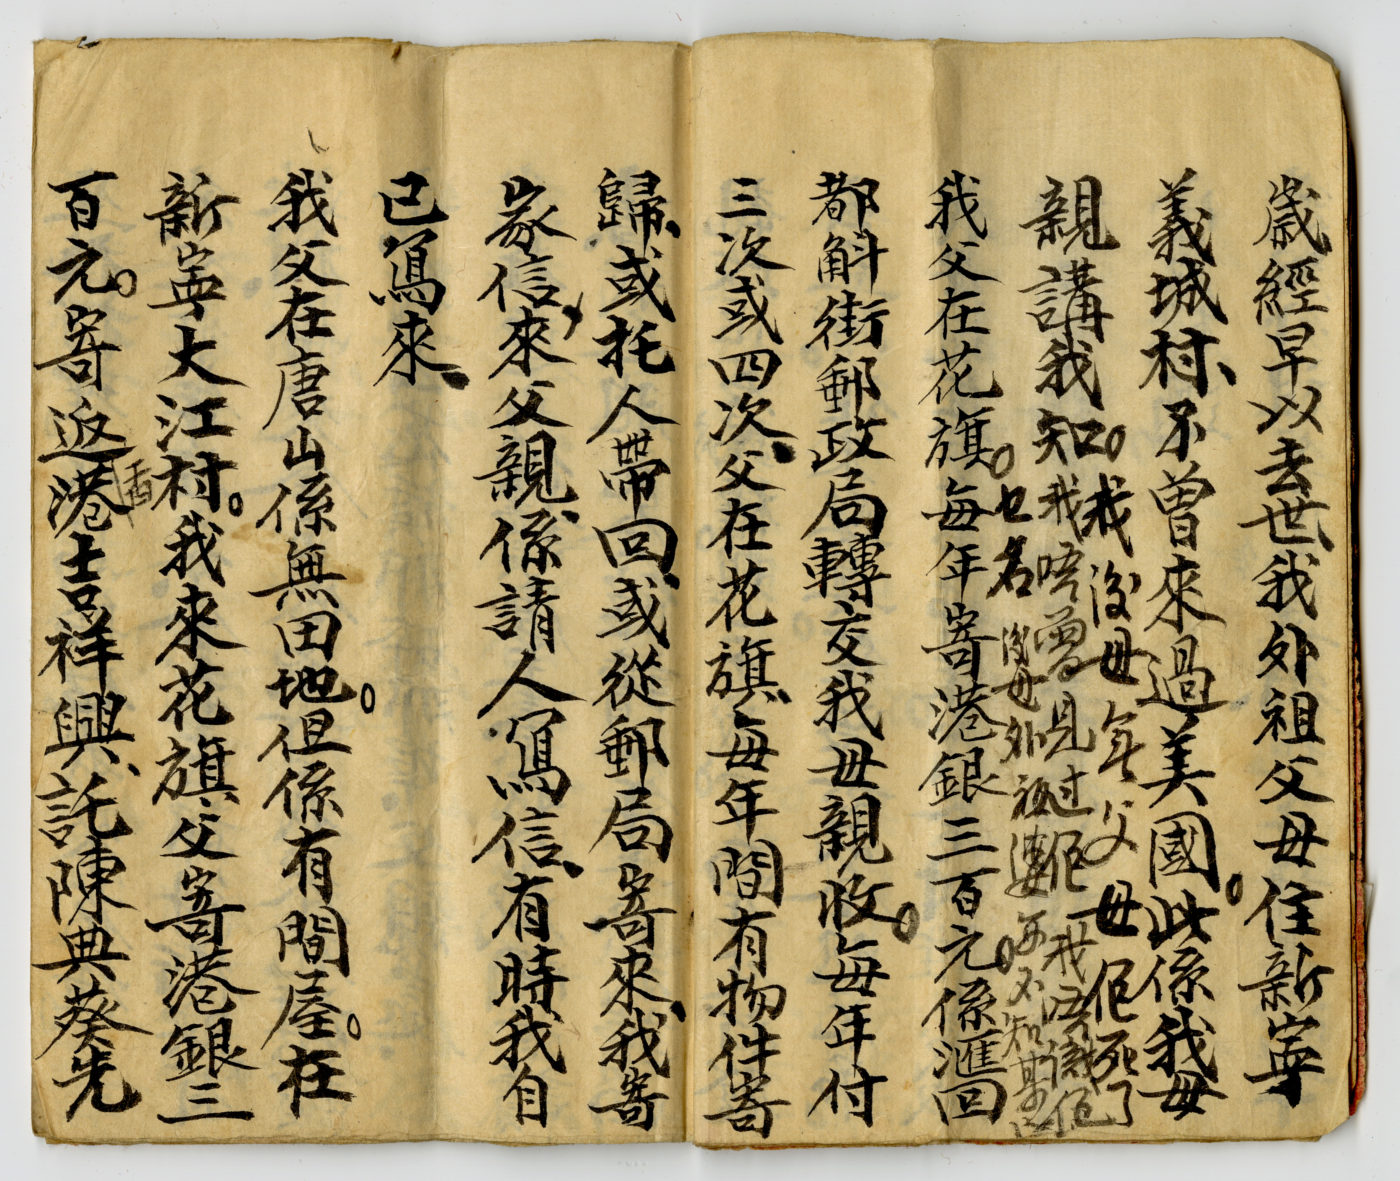 歲經早以去世我外祖父母住新寧
義城村、不曾來過美國。此係我母
親講我知。我唔曾見过佢我唔識佢
我後母年父母佢死了
也名後母外祖婆亦不知其名
我父在花旗。每年寄港銀三百元。係滙回
都斛街郵政局轉交我母親收。每年付
三次或四次、父在花旗、每年間有物件寄
歸、或托人帶回、或從郵局寄來、我寄
家信來、父親係請人寫信、有時我自
已寫來、
我父在唐山係無田地。但係有間屋。在
新寧大江村。我來花旗、父寄港銀三
百元。寄返香港吉祥興、託陳典葵先